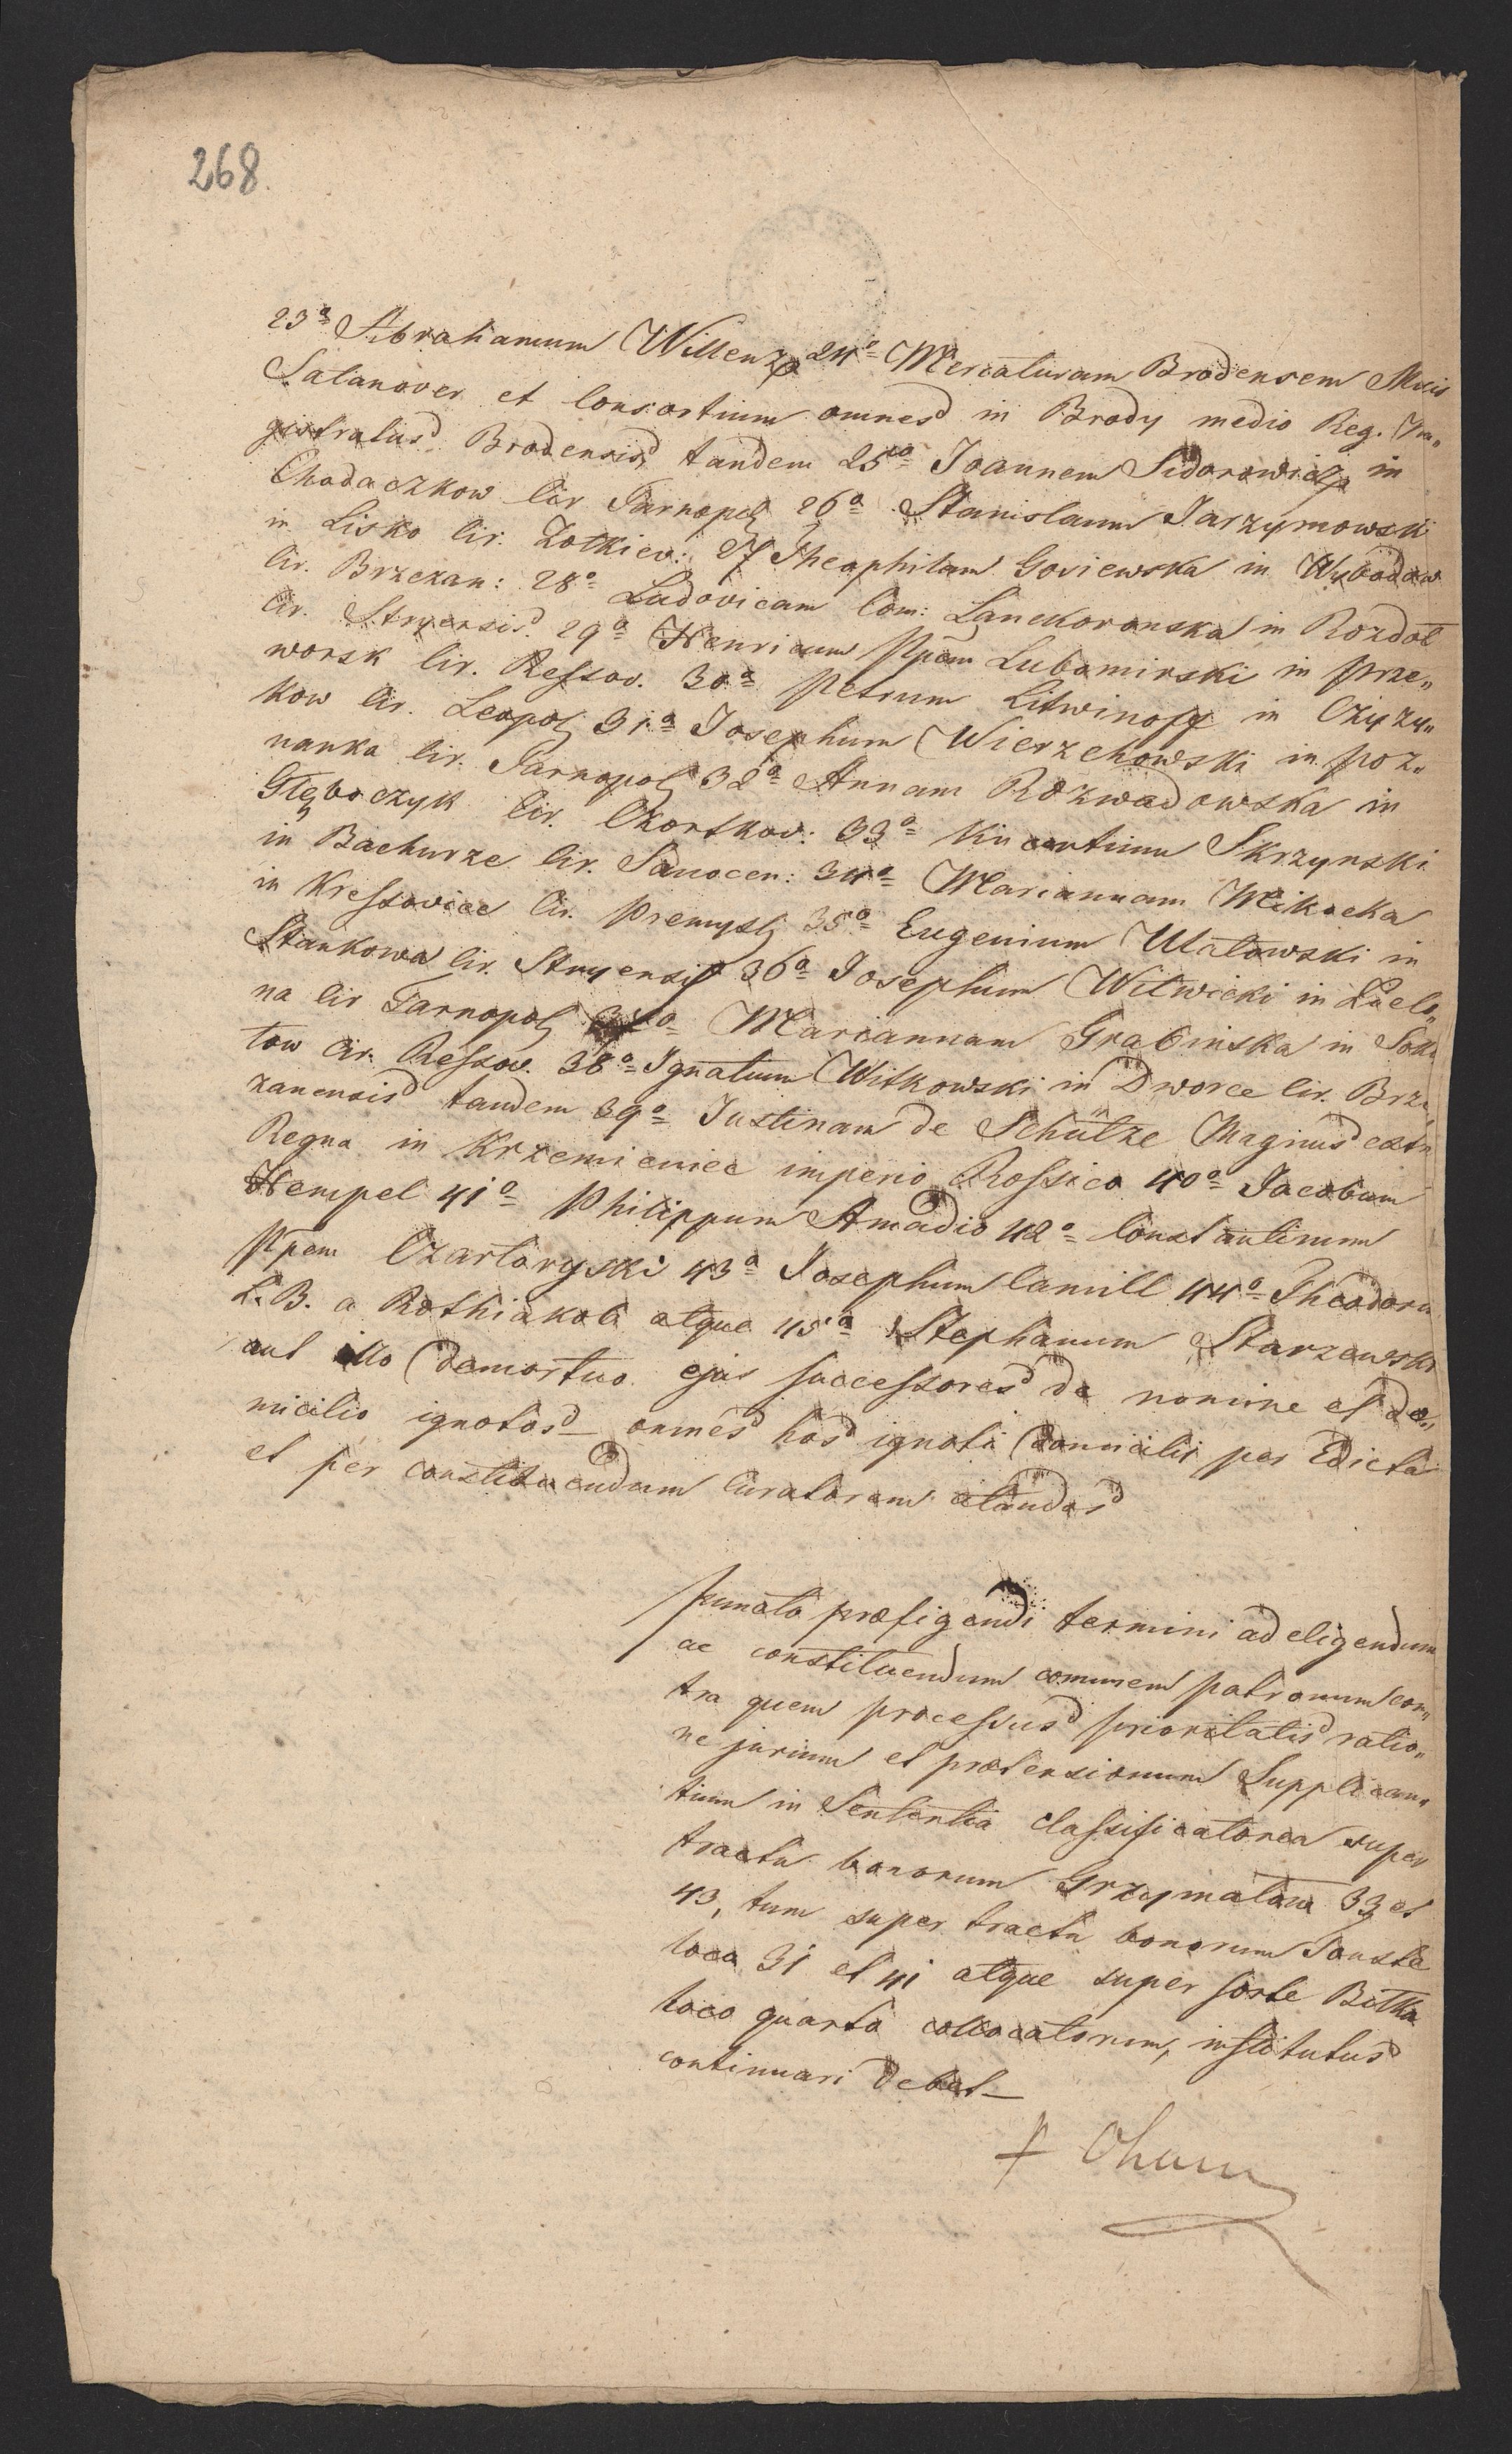 268.
23º Abrahamum Willenz 24º Mercaturam Brodensem Meis
Satanover et Consortium omnes in Brody medio Reg. Ma„
gistratus Brodensis, tandem 25to Joannem Sidorowicz in
Chodaczkow Cir Tarnopol 26º Stanislaum Jarzymowski
in Lisko Cir. Zołkiew: 27 Theophilam Gosiewska in Wybodow
Cir. Brzezan: 28º Ludovicam Com: Lanckoronska in Rozdoł
Cir. Stryensis. 29º Henricum Ppem Lubomirski in Prze„
worsk Cir. Ressov. 30º Petrum Litwinoff in Czyzy„
kow Cir. Leopol 31º Josephum Wierzchowski in Poz„
nanka Cir. Tarnopol 32º Annam Rozwadowska in
Głęboczyk Cir. Czortkov: 33º Vincentium Skrzynski
in Bachurze Cir. Sanocen: 34º Mariannam Mikocka
in Kressovice Cir. Premysl 35º Eugenium Ulatowski in
Stankowa Cir. Stryensis 36º Josephum Witwicki in Luclo„
na Cir Tarnopol 37º Mariannam Grabinska in Soko
tow Cir. Ressov. 38º Ignatum Witkowski in Dworce Cir. Brze
zanensis tandem 39º Justinam de Schütze Magnus extra
Regna in Krzemieniec imperio Rossico 40º Jacobum
Hempel 41º Philippum Amadio 42º Constantinum
Ppem Czartoryski 43º Josephum Camill 44º Theodorum
L. B. a Rothiakob atque 45º Stephanum Starzewski
aut illo demortuo ejus successores de nomine et do„
micilio ignotos – omnes hos ignoti domicilii per Edicta
et per constituendum Curatorem citandos
puncto præfigendi termini ad eligendum
ac constituendum comunem patronum con„
tra quem processus prioritatis ratio„
ne jurium et prætensionum Supplican„
tium in Sententia classificatoria super
tractu bonorum Grzymałow 33 et
43, tum super tractu bonorum Touste
loco 31 et 41 atque super sorte Bitka
loco quarto collocatorum, institutus
continuari debet –